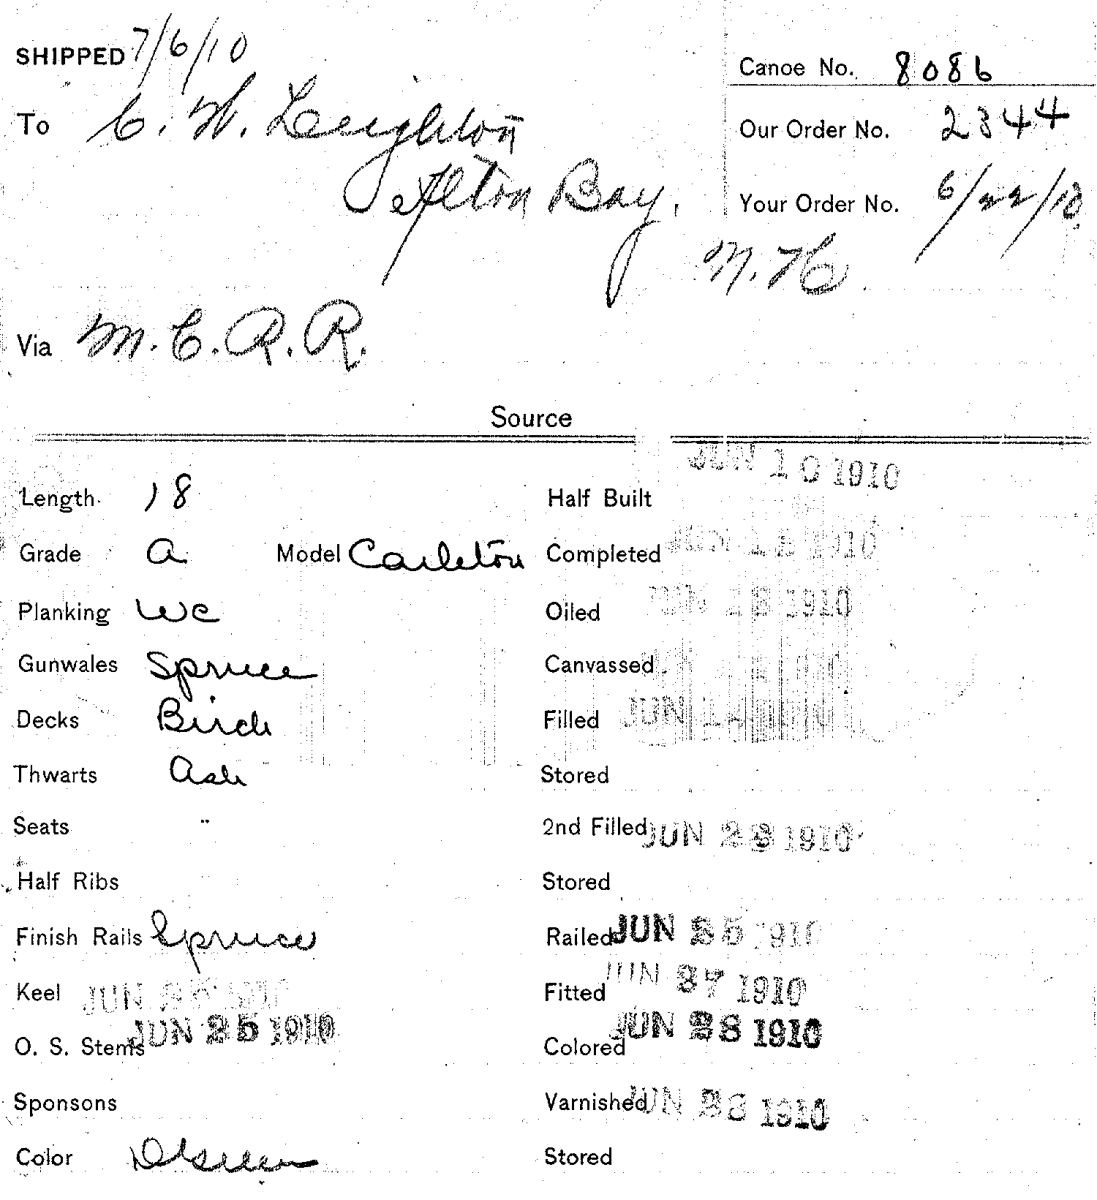 SHIPPED 7/6/10
Canoe No. 8086
To C. W. Leighton
Our Order No. 2344
Alton Bay.
Your Order No. 6/22/10
N. H.
Via M. C. R. R.
Source
Length 18
Half Built JUN 10 1910
Grade A Model Carleton
Completed JUN 1910
Planking WC
Oiled 1910
Gunwales Spruce
Canvassed
Decks Birch
Filled JUN
Thwarts Ash
Stored
Seats "
2nd Filled JUN 1910
Half Ribs
Stored
Finish Rails Spruce
Railed JUN 25 1910
Keel JUN 1910
Fitted JUN 27 1910
O. S. Stems JUN 25 1910
Colored JUN 28 1910
Sponsons
Varnished JUN 1910
Color D Green
Stored